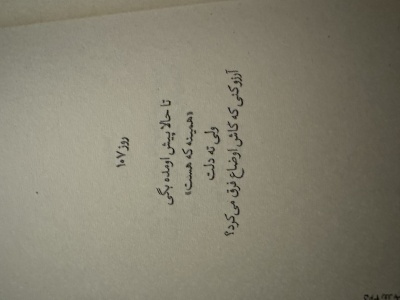 روز ۱۰۷
تا حالا پیش اومده بگی
«همینه که هست»
ولی ته دلت
آرزو کنی که کاش اوضاع فرق می‌کرد؟